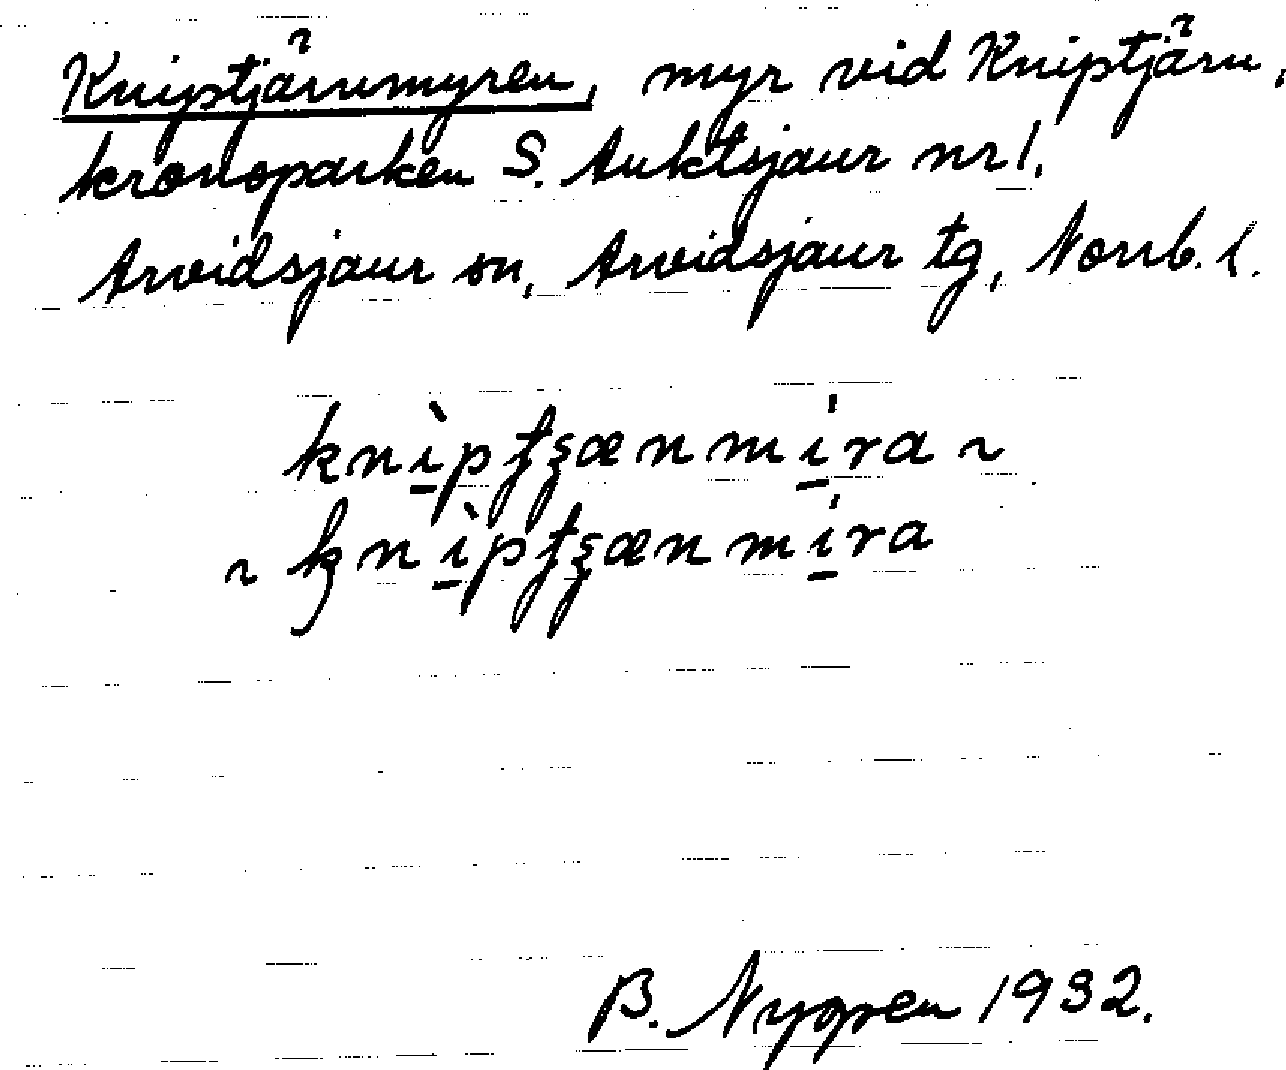 Kniptjärnmyren, myr vid Kniptjärn,
kronoparken S. Auktsjaur nr 1.
Arvidsjaur sn, Arvidsjaur tg, Norrb. l.
B. Nygren 1932.